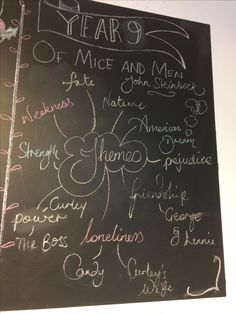 YEAR 9
OF MICE AND MEN
John Steinbeck
fate
Nature
Weakness
American
Dream
Strength
Themes
prejudice
friendship
Curley
power
George
& Lennie
The Boss
loneliness
Candy
Curley's
Wife